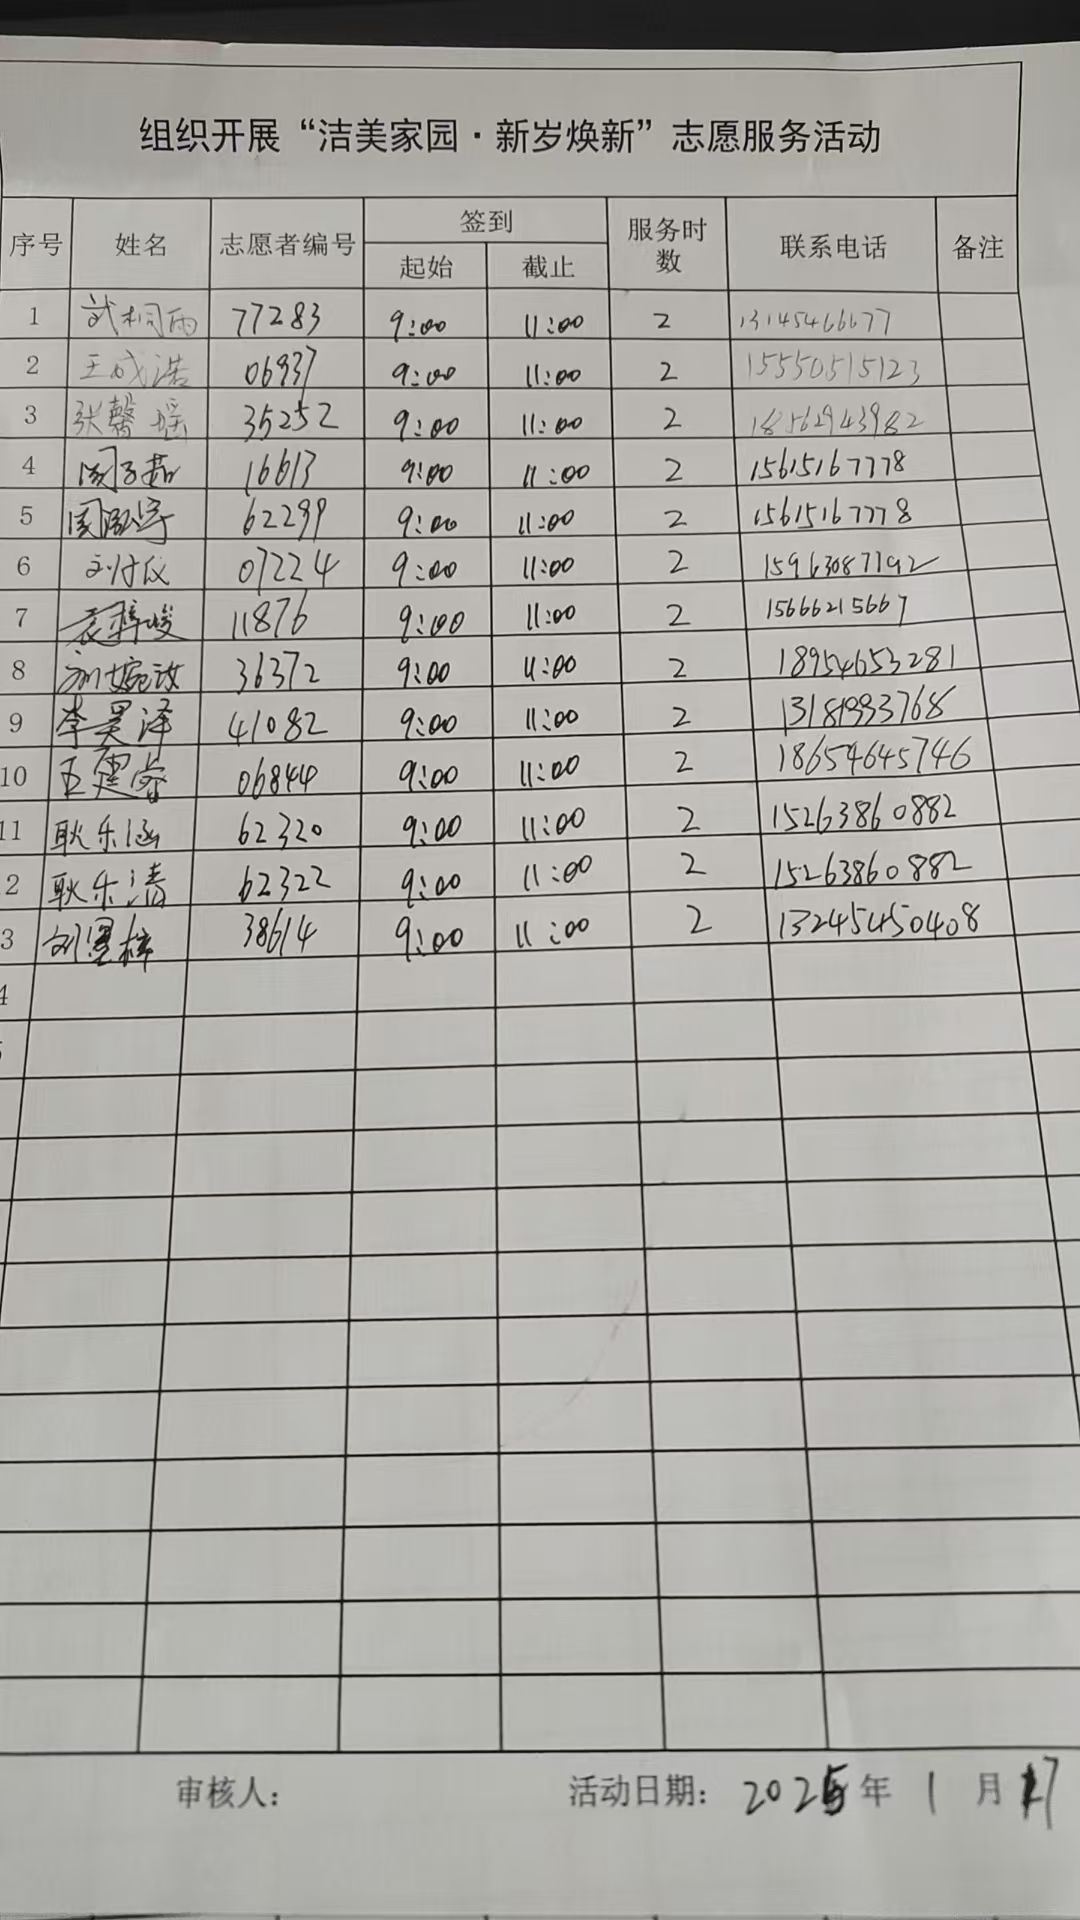 组织开展“洁美家园·新岁焕新”志愿服务活动
序号 姓名 志愿者编号 签到 服务时数 联系电话 备注
起始 截止
1 武桐雨 77283 9:00 11:00 2 13145466677
2 王成浩 06937 9:00 11:00 2 15550515123
3 张馨瑶 35252 9:00 11:00 2 18562943982
4 周子茹 16613 9:00 11:00 2 15615167778
5 周泓宇 62299 9:00 11:00 2 15615167778
6 刘付仪 07224 9:00 11:00 2 15963087192
7 袁梓峻 11876 9:00 11:00 2 15666215667
8 刘婉 36372 9:00 11:00 2 18954653281
9 李昊泽 41082 9:00 11:00 2 13181993768
10 王建睿 06844 9:00 11:00 2 18654645746
11 耿乐涵 62320 9:00 11:00 2 15263860882
2 耿乐清 62322 9:00 11:00 2 15263860882
3 刘墨梓 38614 9:00 11:00 2 13245450408
4
审核人: 活动日期: 2025年1月17